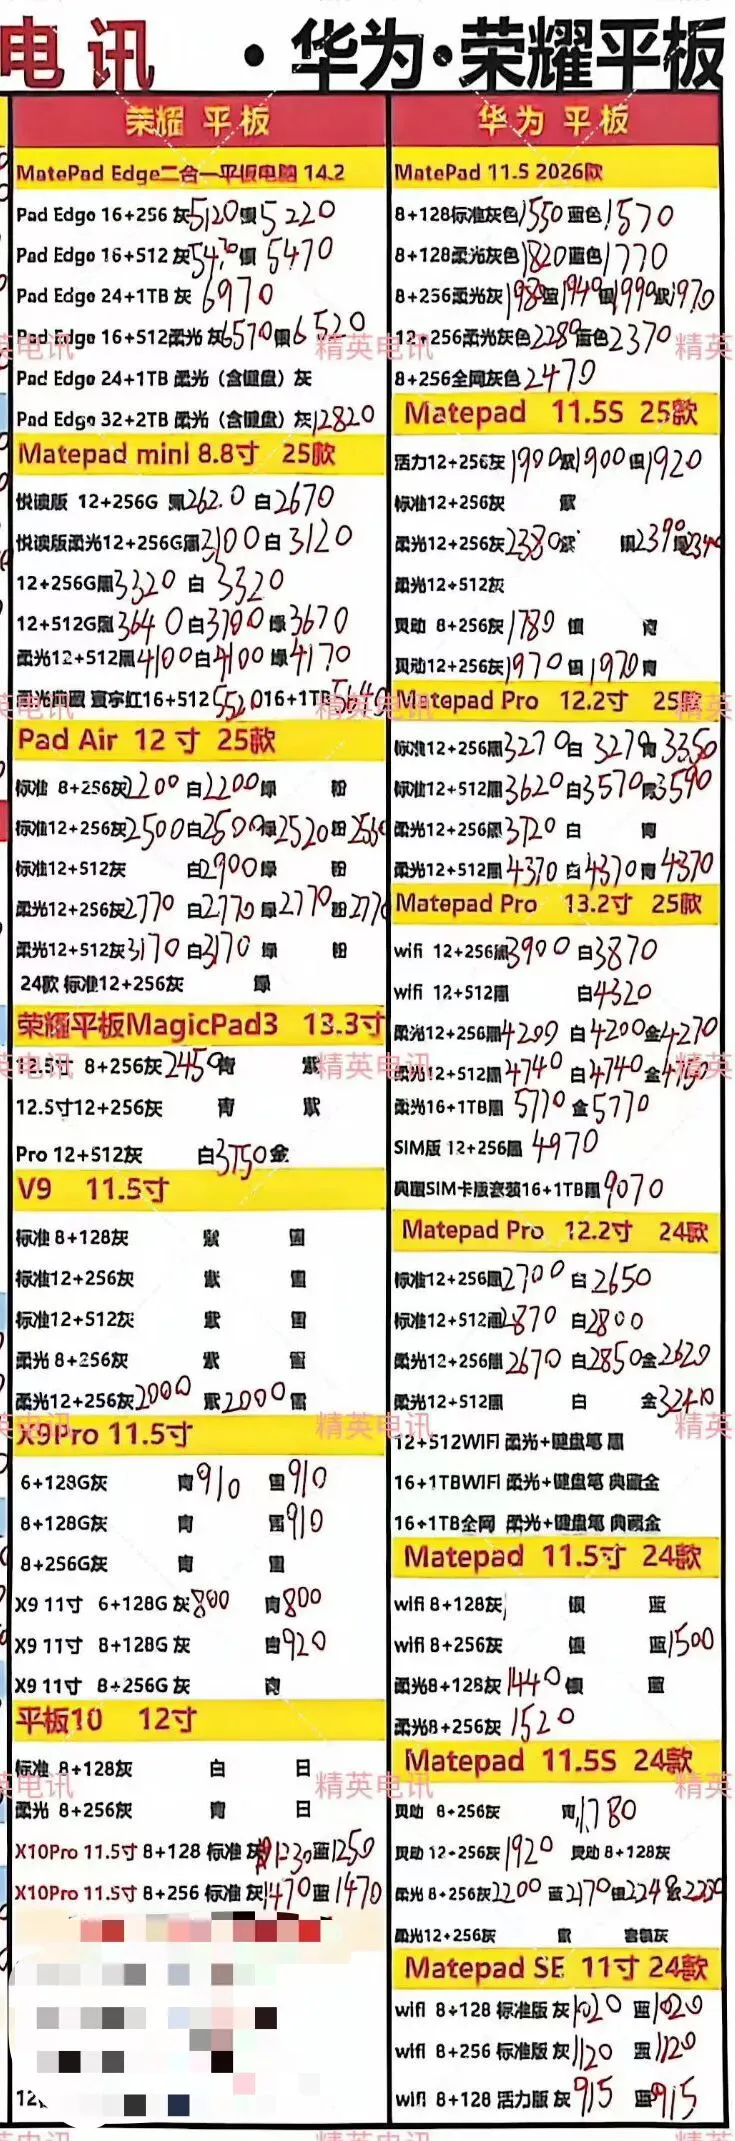 电讯 ·华为·荣耀平板
荣耀 平板
MatePad Edge二合一平板电脑 14.2
Pad Edge 16+256 灰5120银5220
Pad Edge 16+512 灰5430银5470
Pad Edge 24+1TB 灰 6970
Pad Edge 16+512柔光 灰6570银6520
Pad Edge 24+1TB 柔光（含键盘）灰
Pad Edge 32+2TB 柔光（含键盘）灰12820
Matepad mini 8.8寸 25款
悦读版 12+256G 黑2620 白2670
悦读版柔光12+256G黑3100白3120
12+256G黑3320 白3320
12+512G黑3640白3700绿3670
柔光12+512黑4100白4100绿4170
16+512 5520 16+1TB 5640
Pad Air 12寸 25款
标准 8+256灰2200白2200绿 粉
标准12+256灰2500白2500绿2520粉256
标准12+512灰 白2900绿 粉
柔光12+256灰2770白2770绿2770粉277
柔光12+512灰3170白3170绿 粉
24款 标准12+256灰 绿
荣耀平板MagicPad3 13.3寸
12.5寸 8+256灰2450青 紫
12.5寸12+256灰 青 紫
Pro 12+512灰 白3750金
V9 11.5寸
标准8+128灰 紫 雪
标准12+256灰 紫 雪
标准12+512灰 紫 雪
柔光 8+256灰 紫 雪
柔光12+256灰2000紫2000雪
X9Pro 11.5寸
6+128G灰 青910 雪910
8+128G灰 青 雪910
8+256G灰 青 雪
X9 11寸 6+128G 灰800 青800
X9 11寸 8+128G 灰 920
X9 11寸 8+256G 灰 青
平板10 12寸
标准 8+128灰 白 日
柔光 8+256灰 青 日
X10Pro 11.5寸 8+128 标准 灰1230蓝1250
X10Pro 11.5寸 8+256 标准 灰1470蓝1470
12
华为 平板
MatePad 11.5 2026款
8+128标准灰色1550蓝色1570
8+128柔光灰色1820蓝色1770
8+256柔光灰1980蓝1940银1990紫1970
12+256柔光灰色2280蓝色2370
8+256全网灰色2470
Matepad 11.5S 25款
活力12+256灰1900紫1900银1920
标准12+256灰 紫
柔光12+256灰2380紫 银2390
柔光12+512灰
灵动 8+256灰1780 银 青
灵动12+256灰1970银1970青
Matepad Pro 12.2寸 25款
标准12+256黑3270白3270青3350
标准12+512黑3620白3570青3590
柔光12+256黑3720白 青
柔光12+512黑4370白4370青4370
Matepad Pro 13.2寸 25款
wifi 12+256黑3900 白3870
wifi 12+512黑 白4320
柔光12+256黑4200 白4200金4270
柔光12+512黑4740 白4740金
柔光16+1TB黑 5770 金5770
SIM版 12+256黑 4970
典藏SIM卡版套装16+1TB黑9070
Matepad Pro 12.2寸 24款
标准12+256黑2700白2650
标准12+512黑2870 白2800
柔光12+256黑2670 白2850金2620
柔光12+512黑 白 金3240
12+512WIFI 柔光+键盘笔 黑
16+1TBWIFI 柔光+键盘笔 典藏金
16+1TB全网 柔光+键盘笔 典藏金
Matepad 11.5寸 24款
wifi 8+128灰 银 蓝
wifi 8+256灰 银 蓝1500
柔光8+128灰1440银 蓝
柔光8+256灰 1520
Matepad 11.5S 24款
灵动 8+256灰 1780
灵动 12+256灰1920 灵动 8+128灰
柔光 8+256灰2200 蓝2170银2240紫2230
柔光12+256灰 紫
Matepad SE 11寸 24款
wifi 8+128 标准版 灰1020 蓝1020
wifi 8+256 标准版 灰1120 蓝1120
wifi 8+128 活力版 灰915 蓝915
精英电讯